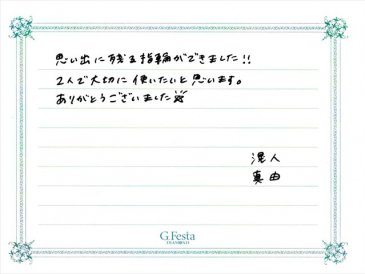 思い出に残る指輪ができました!!
2人で大切に使いたいと思います。
ありがとうございました
滉人
真由
G.Festa
DIAMONDS